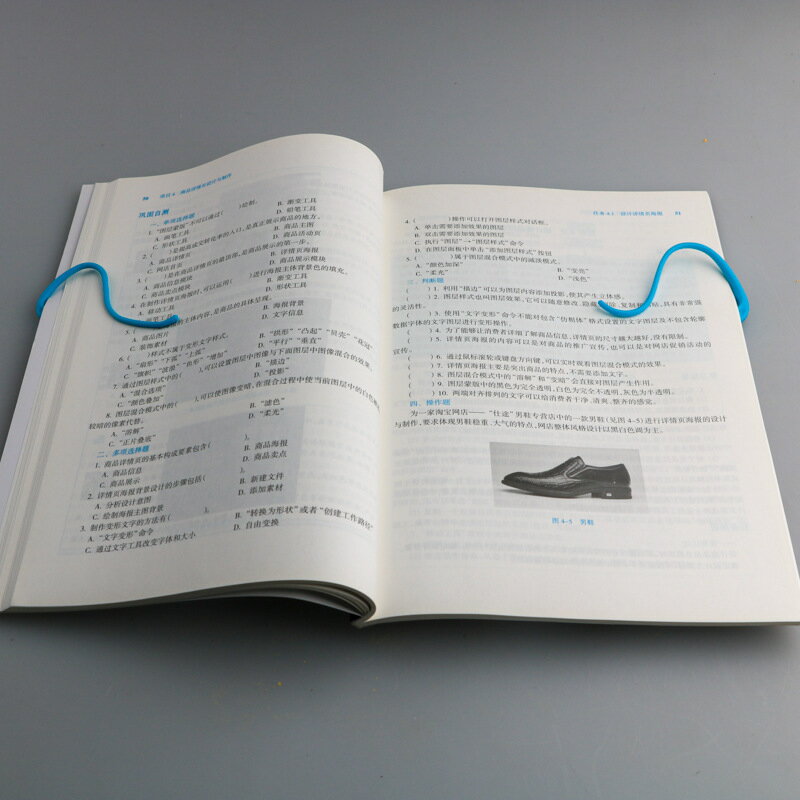 项目4 商品详情页设计与制作
巩固自测
一、单项选择题
1. “图层蒙版”不可以通过( )绘制。
A. 画笔工具 B. 渐变工具
C. 形状工具 D. 铅笔工具
2. ( )是提高成交转化率的入口，是真正展示商品的地方。
A. 商品详情 B. 商品主图
C. 网店首页 D. 商品活动页
3. ( )是在商品详情页的最顶部，是商品展示的第一步。
A. 商品信息模块 B. 详情页海报
C. 商品卖点模块 D. 商品展示模块
4. 在制作详情页海报时，可以运用( )进行海报主体背景色的填充。
A. 移动工具 B. 渐变工具
C. 画笔工具 D. 形状工具
的主体内容，是商品的具体呈现。
A. 商品图片 B. 海报背景
C. 装饰素材 D. 文字信息
6. ( )样式不属于变形文字样式。
A. “扇形”“下弧”“上弧” B. “拱形”“凸起”“贝壳”“花冠”
C. “旗帜”“波浪”“鱼形”“增加” D. “平行”“垂直”
7. 通过图层样式中的( )，可以设置图层中图像与下面图层中图像混合的效果。
A. “混合选项” B. “描边”
C. “颜色叠加” D. “投影”
8. 图层混合模式中的( )，可以使图像变暗，在混合过程中使当前图层中的白色
较暗的像素代替。
A. “溶解” B. “滤色”
C. “正片叠底” D. “柔光”
二、多项选择题
1. 商品详情页的基本构成要素包含( )。
A. 商品信息 B. 商品海报
C. 商品展示 D. 商品卖点
2. 详情页海报背景设计的步骤包括( )。
A. 分析设计意图 B. 新建文件
C. 绘制海报主图背景 D. 添加素材
3. 制作变形文字的方法有( )。
A. “文字变形”命令 B. “转换为形状”或者“创建工作路径”
C. 通过文字工具改变字体和大小 D. 自由变换
任务4.1 设计详情页海报
4. ( )操作可以打开图层样式对话框。
A. 单击需要添加效果的图层
B. 双击需要添加效果的图层
C. 执行“图层”→“图层样式”命令
D. 在图层面板中单击“添加图层样式”按钮
5. ( )属于图层混合模式中的减淡模式。
A. “颜色加深” B. “变亮”
C. “柔光” D. “浅色”
三、判断题
( )1. 利用“描边”可以为图层内容添加投影，使其产生立体感。
( )2. 图层样式也叫图层效果，它可以随意修改、隐藏 删除，复制和粘贴，具有非常强
的灵活性。
( )3. 使用“文字变形”命令不能对包含“仿粗体”格式设置的文字图层及不包含轮廓
数据字体的文字图层进行变形操作。
( )4. 为了能够让消费者详细了解商品信息，详情页的尺寸越大越好，没有限制。
( )5. 详情页海报的内容可以是对商品的推广宣传，也可以是对网店促销活动的
宣传。
( )6. 通过鼠标滚轮或键盘方向键，可以实时观看图层混合模式的效果。
( )7. 详情页海报主要是突出商品的特点，不需要添加文字。
( )8. 图层混合模式中的“溶解”和“变暗”会直接对图层产生作用。
( )9. 图层蒙版中的黑色为完全透明，白色为完全不透明，灰色为半透明。
( )10. 两端对齐排列的文字可以给消费者干净、清爽、整齐的感觉。
四、操作题
为一家淘宝网店——“仕途”男鞋专营店中的一款男鞋(见图4-5)进行详情页海报的设计
与制作，要求体现男鞋稳重、大气的特点，网店整体风格设计以黑白色调为主。
图4-5 男鞋